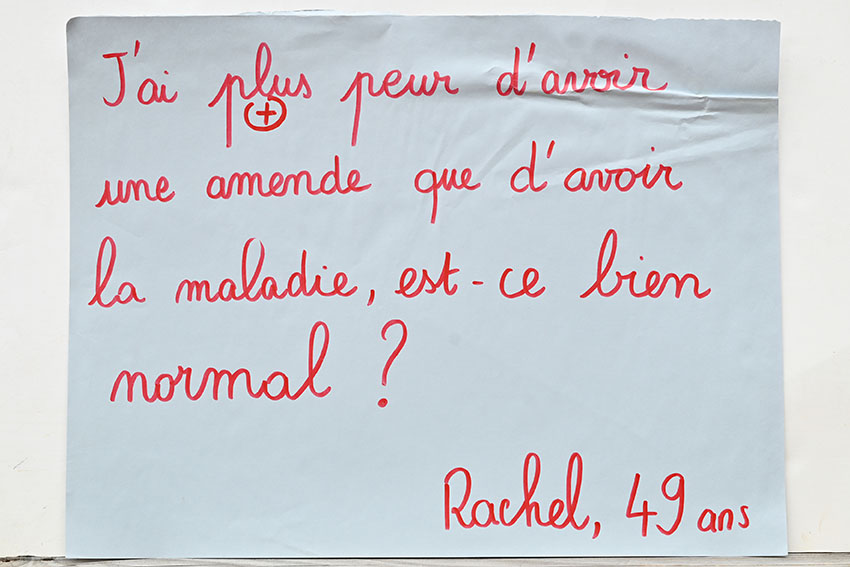 J'ai plus peur d'avoir
(+)
une amende que d'avoir
la maladie, est-ce bien
normal ?
Rachel, 49 ans